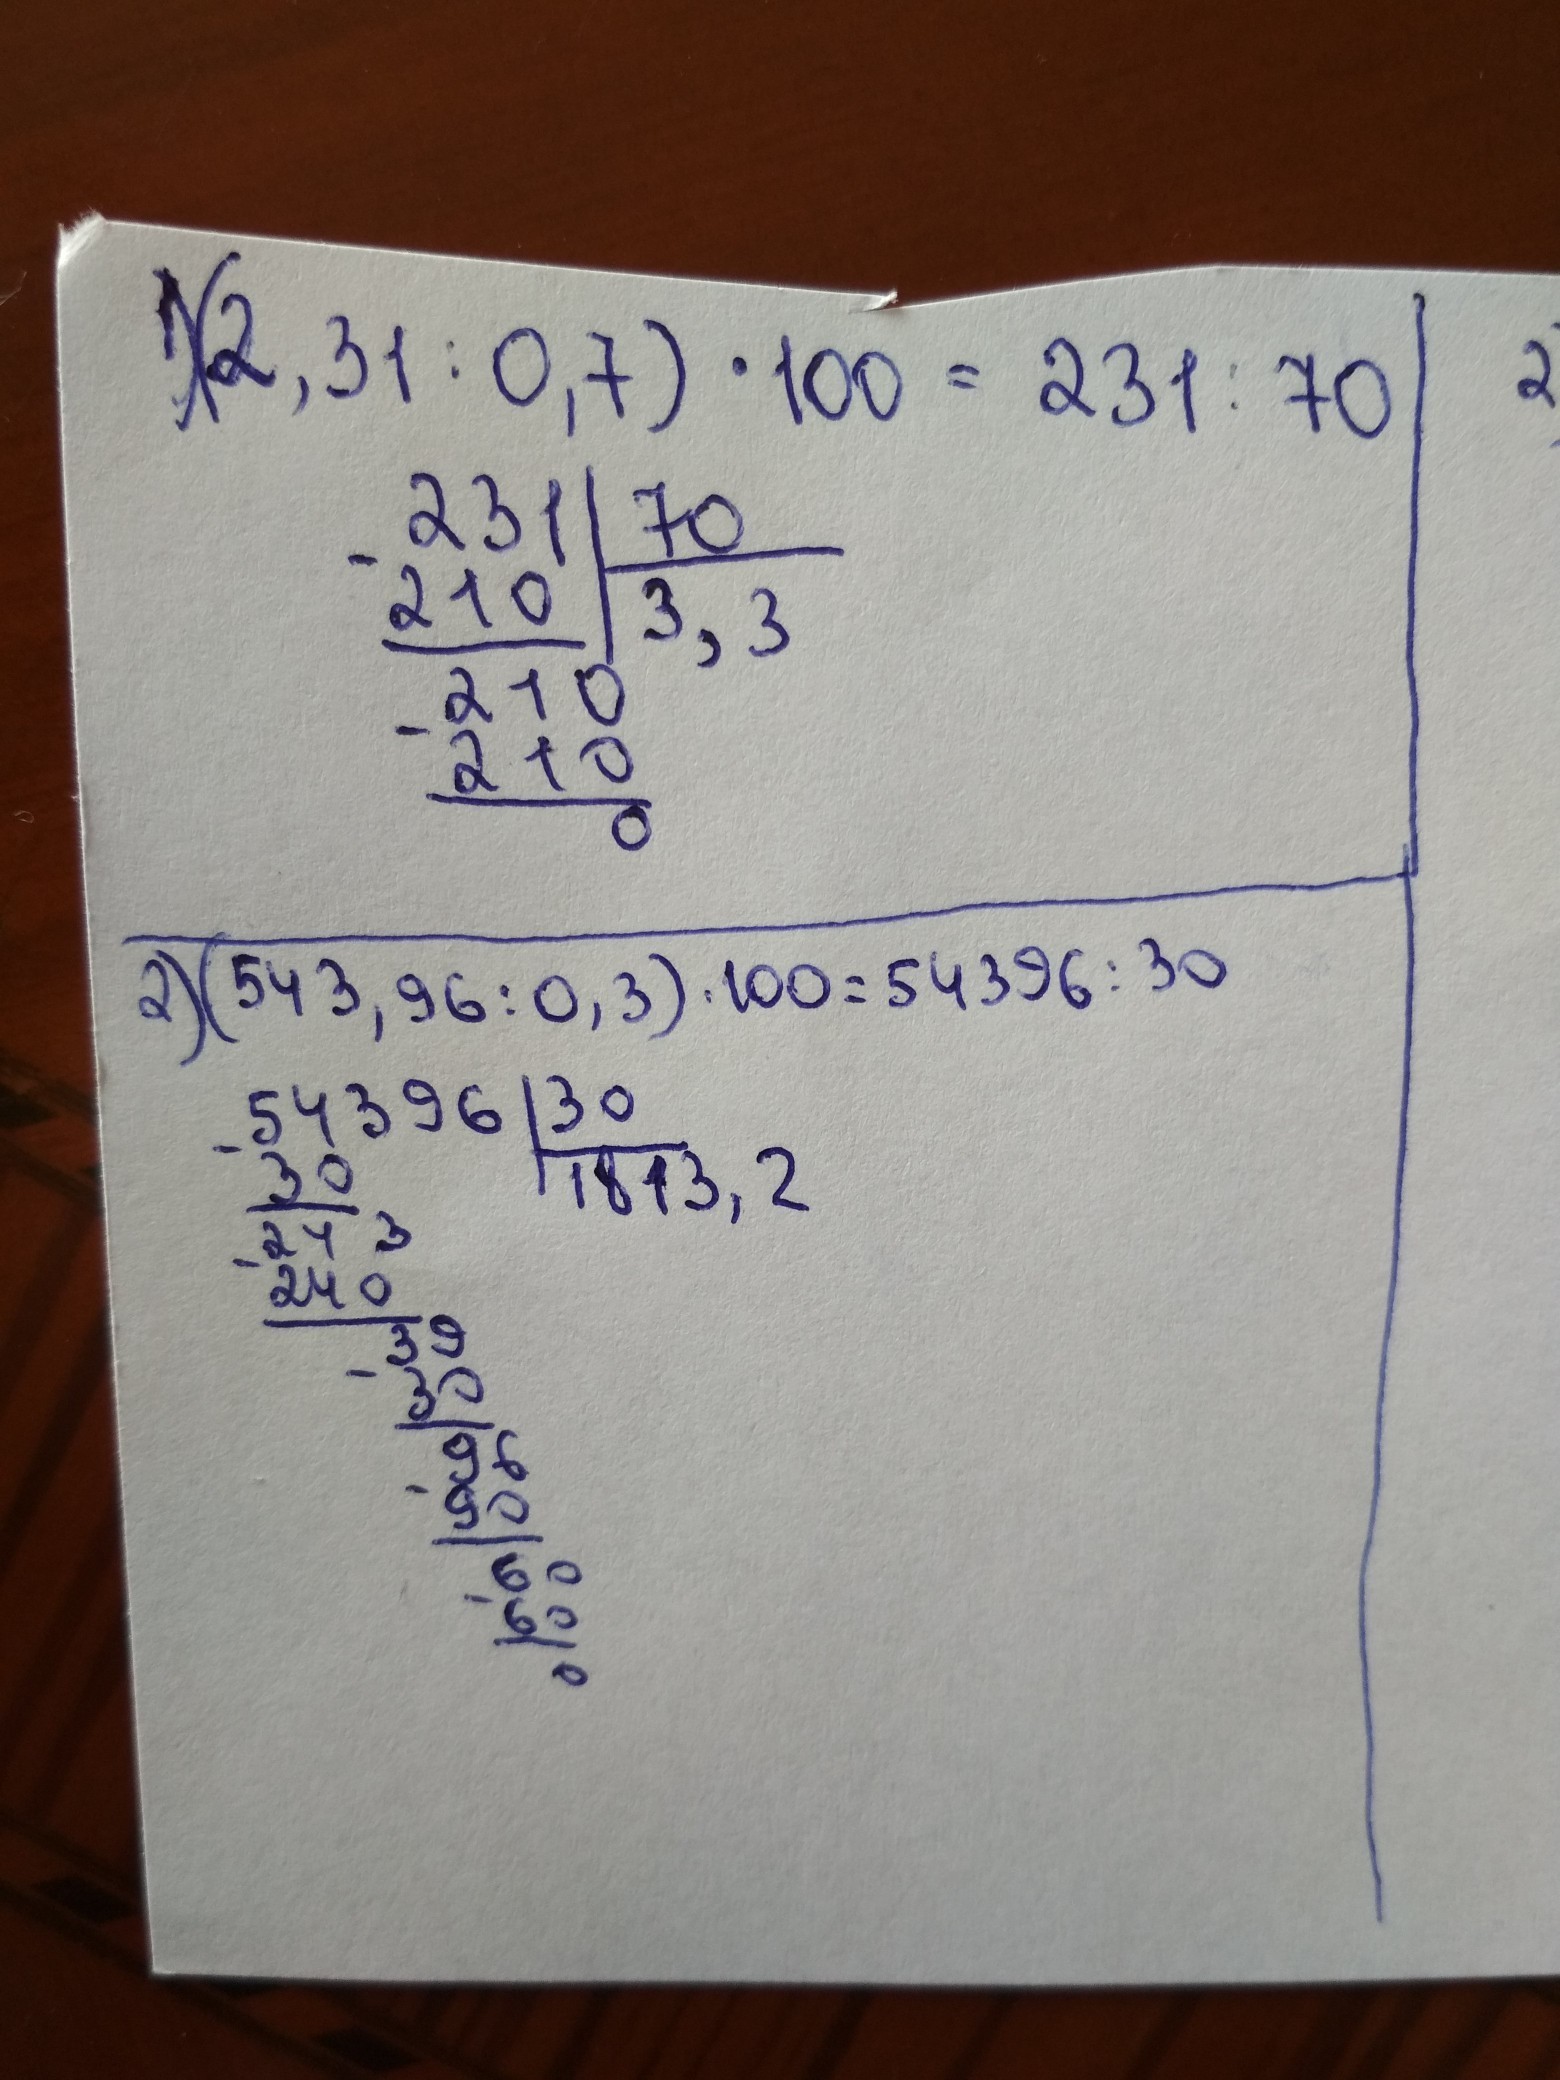 1)(2,31:0,7)·100=231:70
231 70
-
210 3,3
210
-
210
0
2)(543,96:0,3)·100=54396:30
-54396 30
30 1813,2
-243
240
-39
30
-96
90
-60
60
0
2